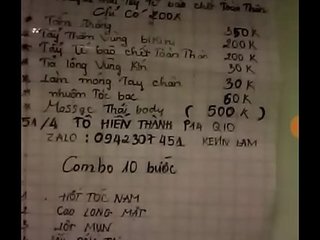 Tẩy Tế bào chết Toàn Thân
Chỉ Có 200K
Tắm Trắng 350K
Tẩy Thâm Vùng bikini 200K
Tẩy Tế bào chết Toàn Thân 200K
Tỉa lông Vùng Kín 30K
Làm móng Tay chân 30K
nhuộm Tóc bạc 60K
Massge Thái body ( 500K )
51/4 TÔ HIẾN THÀNH P14 Q10
ZALO : 0942307451 KEVIN LAM
Combo 10 bước
HỚT TÓC NAM
CẠO LÔNG MẶT
MỤN